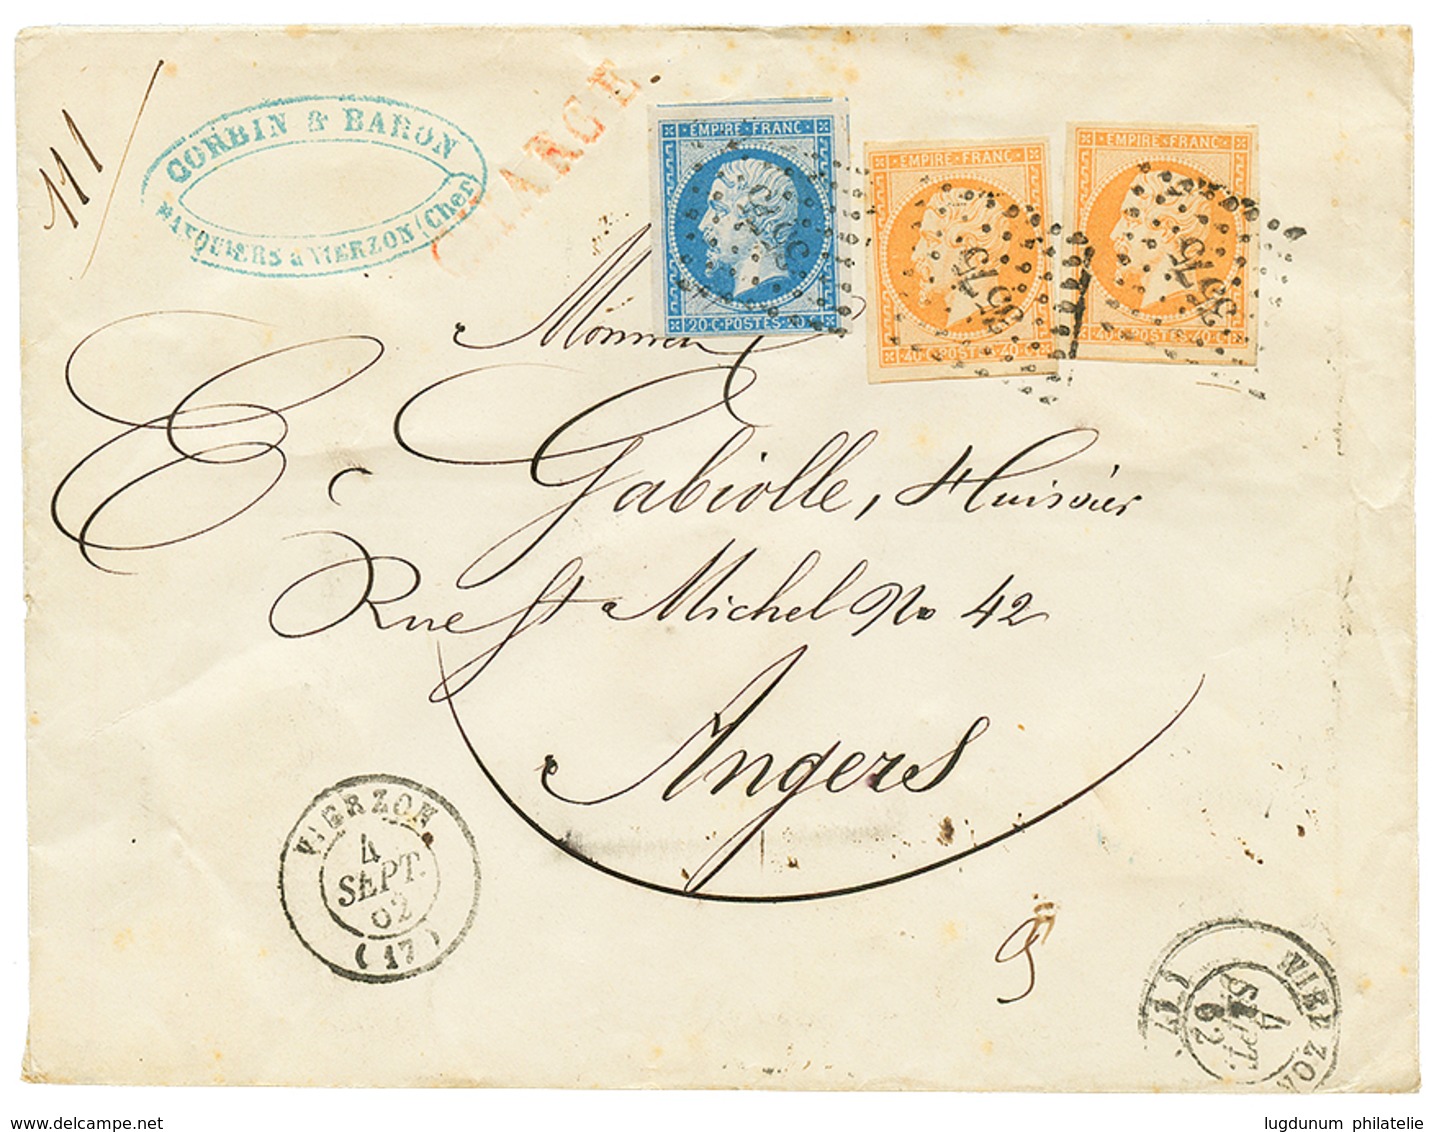 111
CORBIN & BARON
BANQUIERS à VIERZON (Cher)
CHARGE
EMPIRE FRANC
20 C POSTES 20 C
EMPIRE FRANC
40 C POSTES 40 C
EMPIRE FRANC
40 C POSTES 40 C
Monsieur
E Gabiolle, Huissier
Rue St Michel No 42
Angers
VIERZON
4
SEPT.
62
(17)
VIERZON
4
SEPT.
62
(17)
www.delcampe.net
lugdunum philatelie